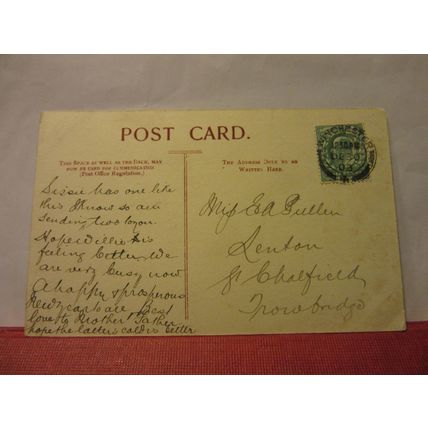 POST CARD.
THIS SPACE AS WELL AS THE BACK, MAY
NOW BE USED FOR COMMUNICATION
(Post Office Regulation.)
THE ADDRESS ONLY TO BE
WRITTEN HERE.
WINCHESTER
DE 30
Lissie has one like
this I know so am
sending two to you.
Hope Willie is
feeling better, We
are very busy now
A happy & prosperous
New year to all Best
love to Mother Father
hope the latter's cold is better
Miss E A Pullen
Lenton
Gt Chalfield
Trowbridge